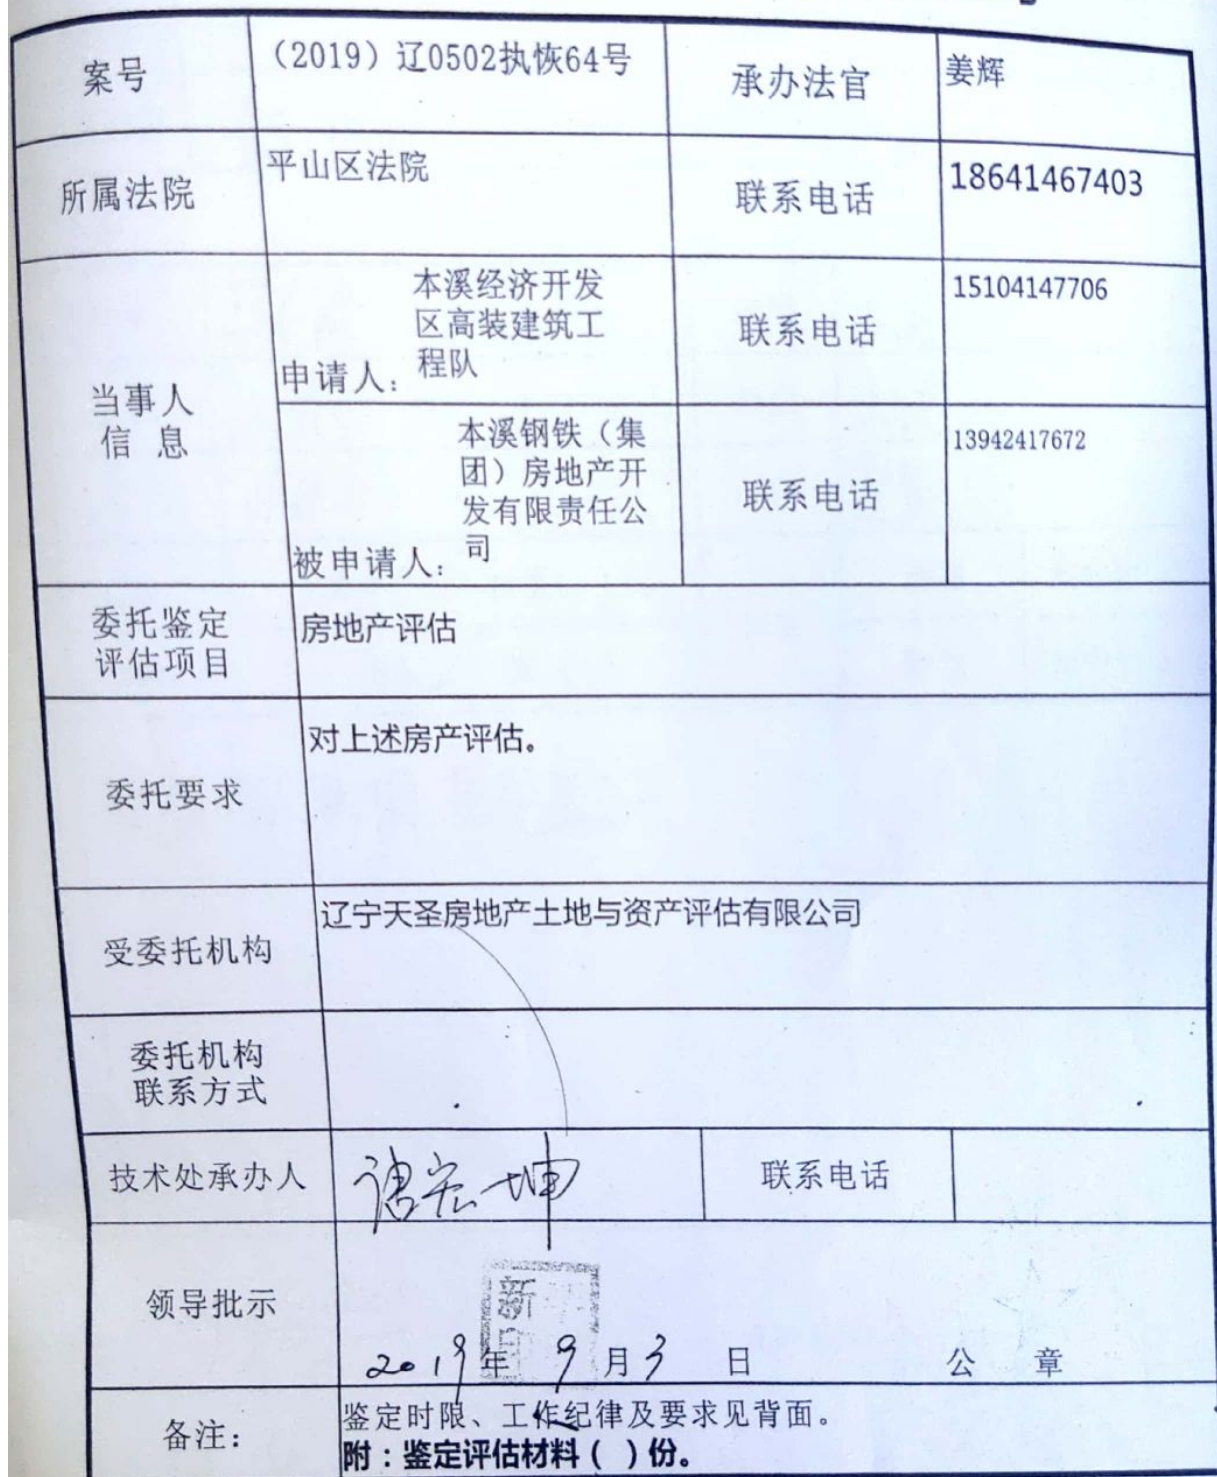 案号
（2019）辽0502执恢64号
承办法官
姜辉
所属法院
平山区法院
联系电话
18641467403
当事人
信 息
申请人：
本溪经济开发
区高装建筑工
程队
联系电话
15104147706
被申请人：
本溪钢铁（集
团）房地产开
发有限责任公
司
联系电话
13942417672
委托鉴定
评估项目
房地产评估
委托要求
对上述房产评估。
受委托机构
辽宁天圣房地产土地与资产评估有限公司
委托机构
联系方式
技术处承办人
联系电话
领导批示
新
2019年 9月3 日
公 章
备注：
鉴定时限、工作纪律及要求见背面。
附：鉴定评估材料（ ）份。